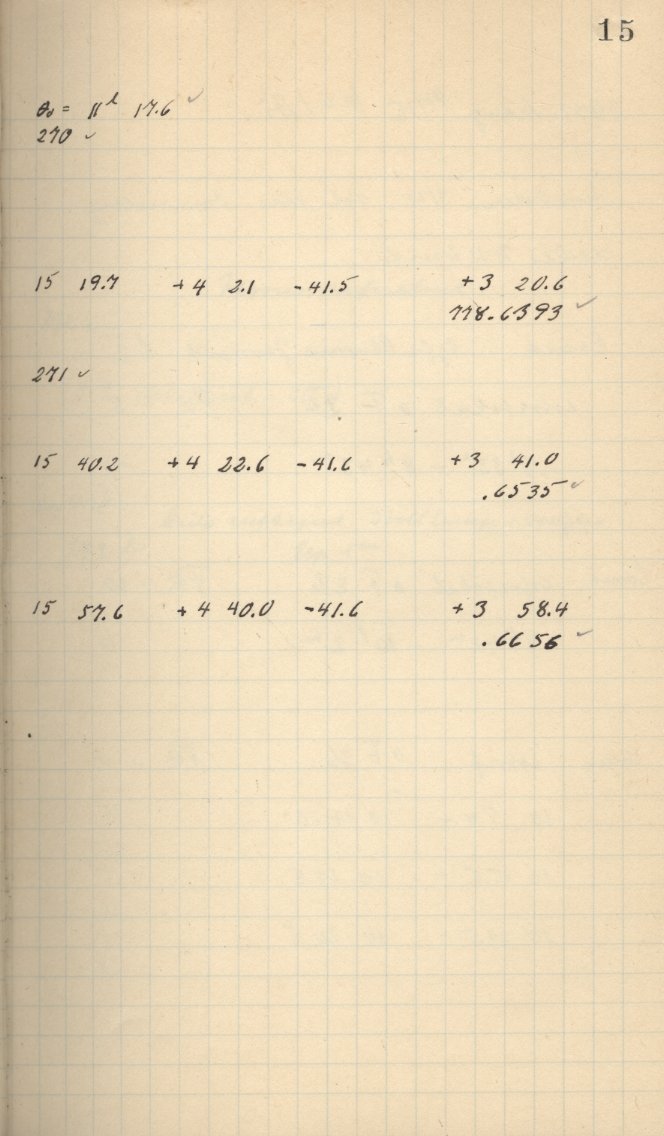 15
θ₀ = 11ʰ 17.6 ✓
270 ✓
15 19.7 +4 2.1 -41.5 +3 20.6
778.6393 ✓
271 ✓
15 40.2 +4 22.6 -41.6 +3 41.0
.6535 ✓
15 57.6 +4 40.0 -41.6 +3 58.4
.6656 ✓